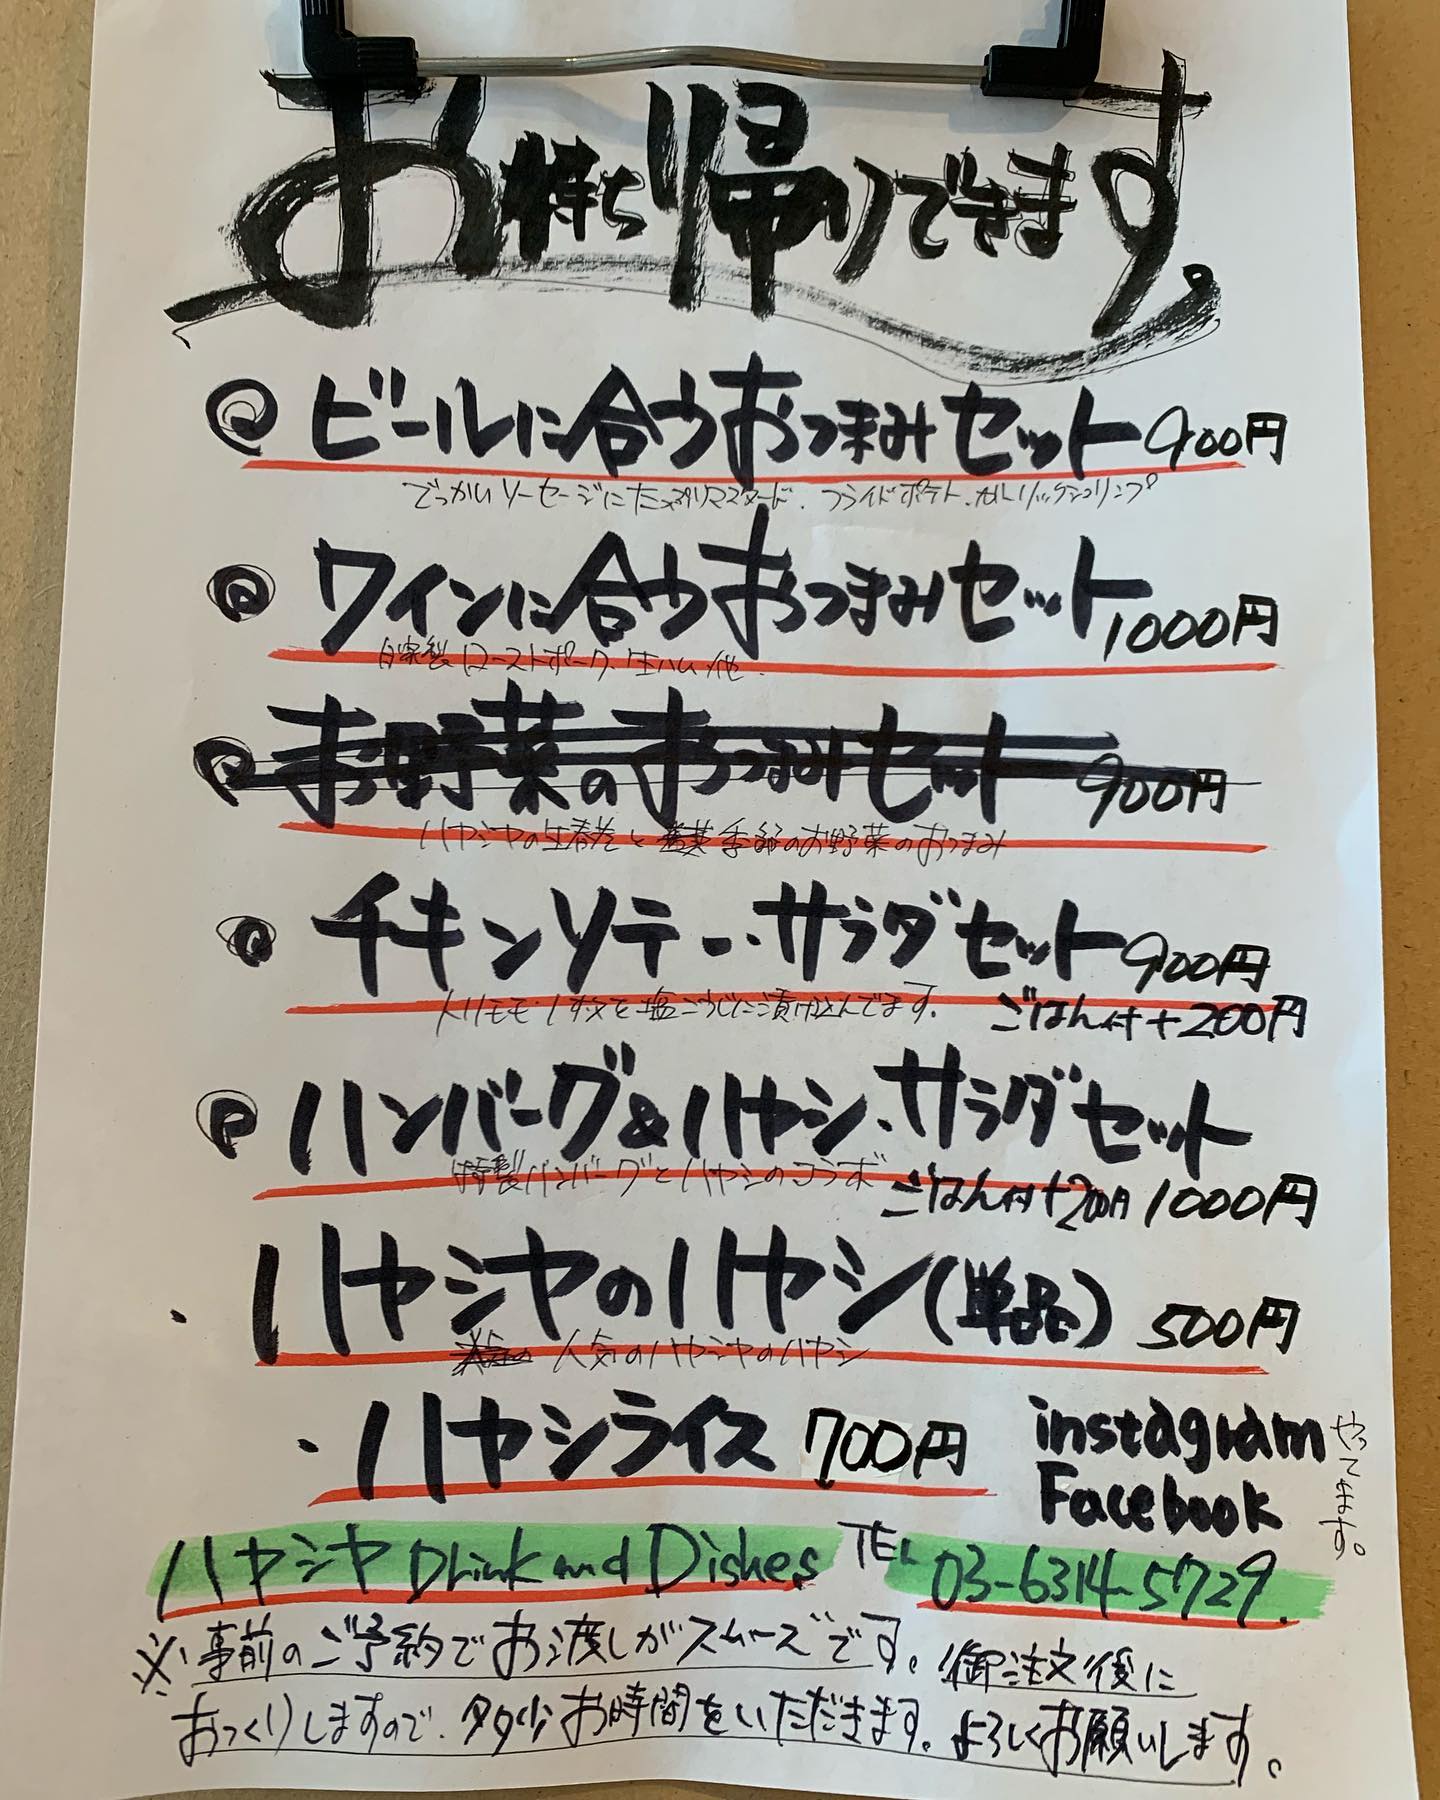 お持ち帰りできます。
ビールに合うおつまみセット 900円
でっかいソーセージにたっぷりマスタード、フライドポテト、ガーリックシュリンプ
ワインに合うおつまみセット 1000円
自家製ローストポーク、生ハム、他
お野菜のおつまみセット 900円
ハヤシヤの生春巻と 季節のお野菜のおつまみ
チキンソテー、サラダセット 900円
トリモモ1枚を塩こうじに漬け込んでます。 ごはん付+200円
ハンバーグ&ハヤシ、サラダセット
特製ハンバーグとハヤシのコラボ ごはん付+200円 1000円
・ハヤシヤのハヤシ(単品) 500円
人気のハヤシヤのハヤシ
・ハヤシライス 700円
instagram
Facebook
やってます。
ハヤシヤ Drink and Dishes TEL 03-6314-5729.
※事前のご予約でお渡しがスムーズです。御注文後に
おつくりしますので、多少お時間をいただきます。よろしくお願いします。